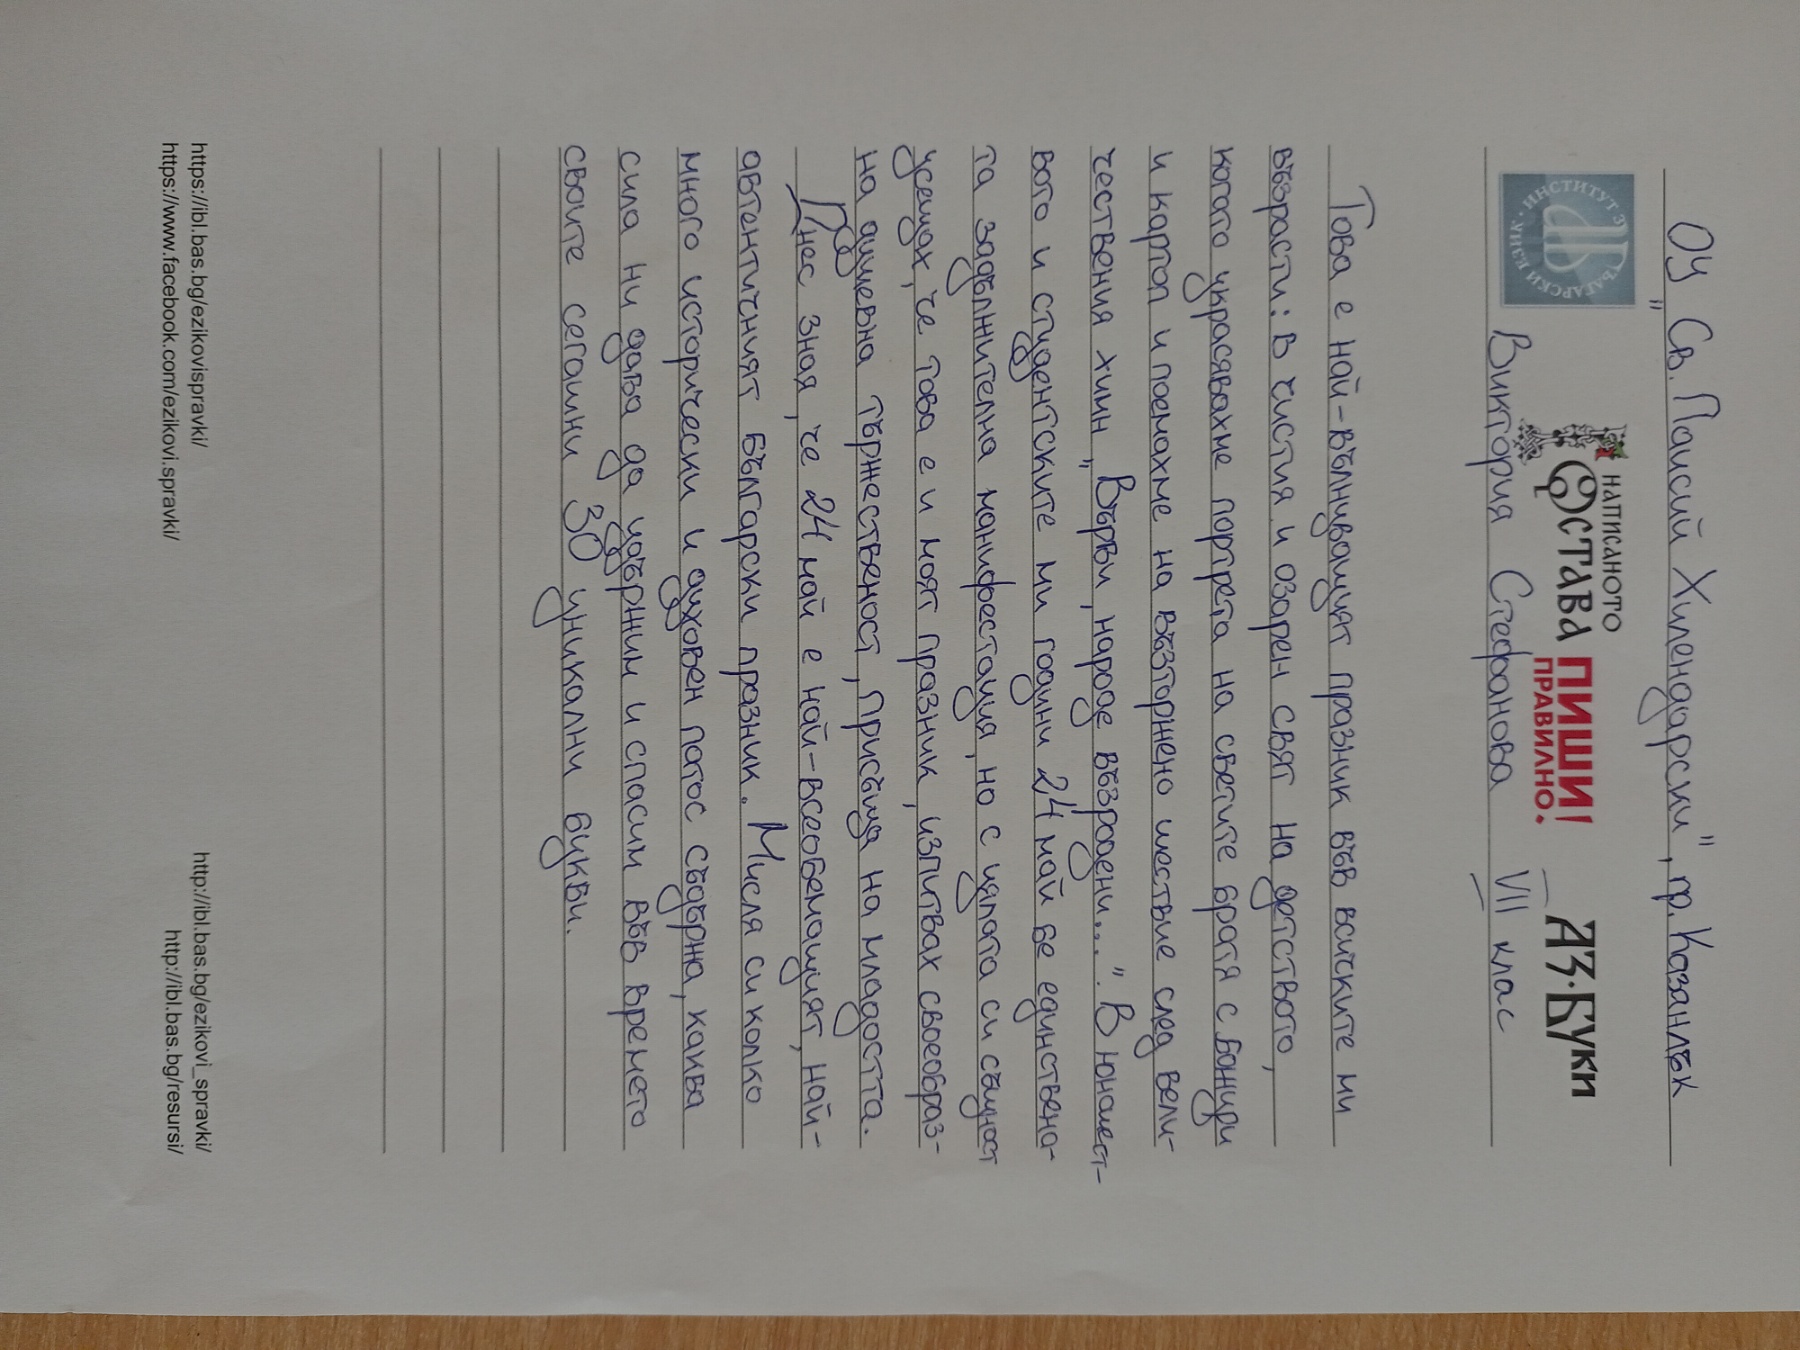 ОУ „Св. Паисий Хилендарски“, гр. Казанлък
ИНСТИТУТ ЗА БЪЛГАРСКИ ЕЗИК
НАПИСАНОТО
ОСТАВА ПИШИ!
ПРАВИЛНО!
АЗ·БУКИ
Виктория Стефанова VII клас
Това е най-вълнуващият празник във всичките ми
възрасти: в чистия и озарен свят на детството,
когато украсявахме портрета на светите братя с божури
и картоп и поемахме на възторжено шествие след вели-
чествения химн „Върви, народе възродени...“. В юношест-
вото и студентските ми години 24 май бе единствена-
та задължителна манифестация, но с цялата си същност
усещах, че това е и моят празник, изпитвах своеобраз-
на душевна тържественост, присъща на младостта.
Днес зная, че 24 май е най-всеобемащият, най-
автентичният български празник. Мисля си колко
много исторически и духовен патос съдържа, каква
сила ни дава да издържим и спасим във времето
своите сегашни 30 уникални букви.
https://ibl.bas.bg/ezikovispravki/
https://www.facebook.com/ezikovi.spravki/
http://ibl.bas.bg/ezikovi_spravki/
http://ibl.bas.bg/resursi/